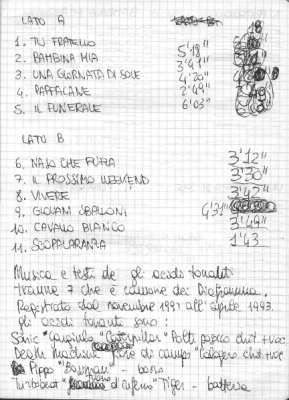 LATO A
1. TU FRATELLO 5'18"
2. BAMBINA MIA 3'41"
3. UNA GIORNATA DI SOLE 4'20"
4. PAPPACANE 2'49"
5. IL FUNERALE 6'03"
LATO B
6. NASO CHE PUZZA 3'12"
7. IL PROSSIMO WEEKEND 3'30"
8. VIVERE 3'42"
9. GIOVANI SBALLONI 4'31"
10. CAVALLO BIANCO 3'49"
11. 1'43
Musica e testi de gli acidi tonanti
tranne 7 che è canzone dei
Registrato da novembre 1991 all'aprile 1993.
gli acidi tonanti sono:
Sonic "Caterpillar" chit+voc
Death Machine di campo chit+voc
Pippo - basso
Turbobeat d'inferno "Tiger" - batteria